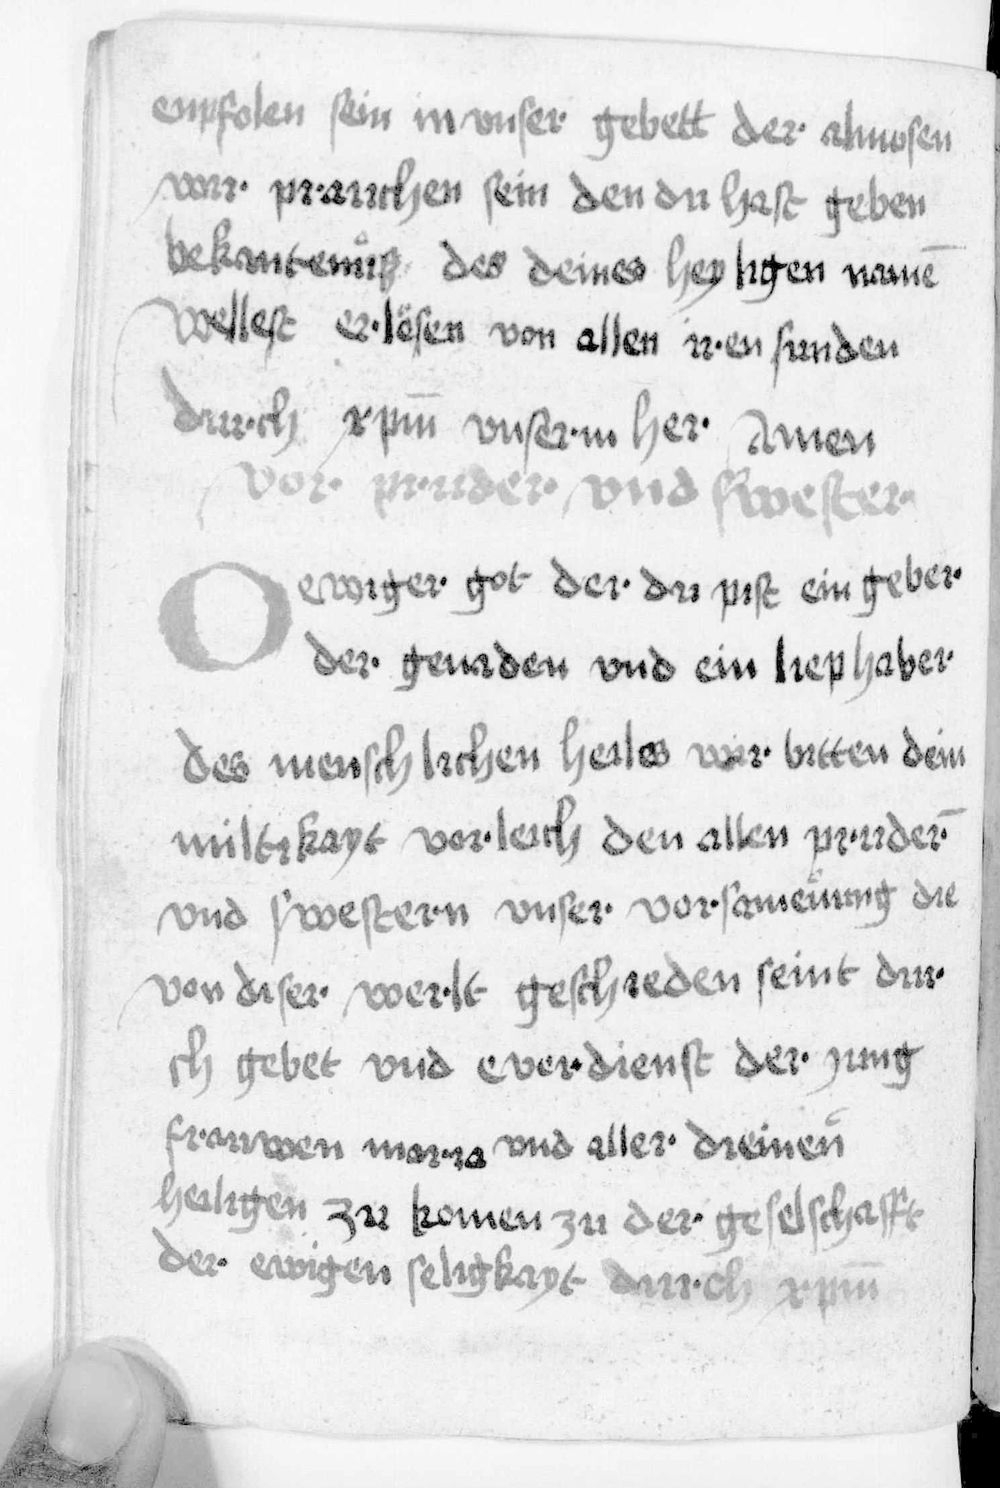 enpfolen sein in vnser gebett der almosen
wir prauchen sein den du hast geben
bekantenuͦß des deines heyligen namē
wellest erlösen von allen iren sunden
durch xpm̄ vnserm her Amen
vor pruder vnd swester
O ewiger got der du pist ein geber
der genaden vnd ein liephaber
des menschlichen heiles wir bitten dein
miltikayt vorleich den allen pruder̄
vnd swestern vnser vorsamenung die
von diser werlt geschieden seint dur
ch gebet vnd everdienst der iung
frauwen maria vnd aller dieinen̄
heiligen zu komen zu der geselschafft
der ewigen seligkayt durch xpm̄